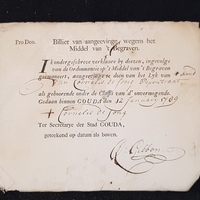 Pro Deo.
Billiet van aangeevinge, wegens het
Middel van 't Begraven.
Ik ondergeschreve verklaare by deesen, ingevolge
van de Ordonnantie op 't Middel van 't Begraven
geëmaneert, aangegeven te zijn van het Lyk van
Cornelis de Jong
als gehoorende onder de Classis van d' onvermogende.
Gedaan binnen GOUDA den 12 January 1769
Cornelis de Jong
Ter Secretarye der Stad GOUDA,
geteekend op datum als boven.